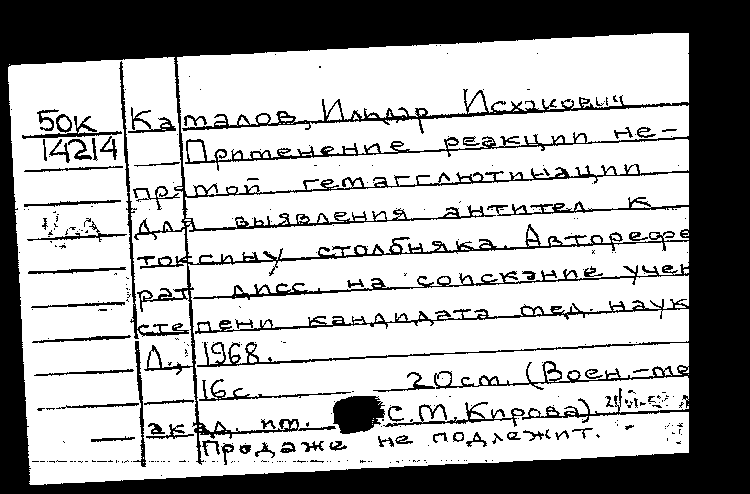 50К Каталов, Ильдар Исхакович
14214 Применение реакции не-
прямой гемагглютинации
для выявления антител к
токсину столбняка. Авторефе
рат дисс. на соискание учен
степени кандидата мед. наук
Л., 1968.
16с. 20см. (Воен.-ме
акад. им. С.М. Кирова).
Продаже не подлежит.